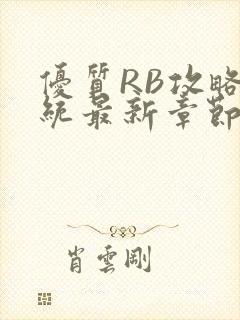 優質RB攻略
統最新章節
肖雲剛